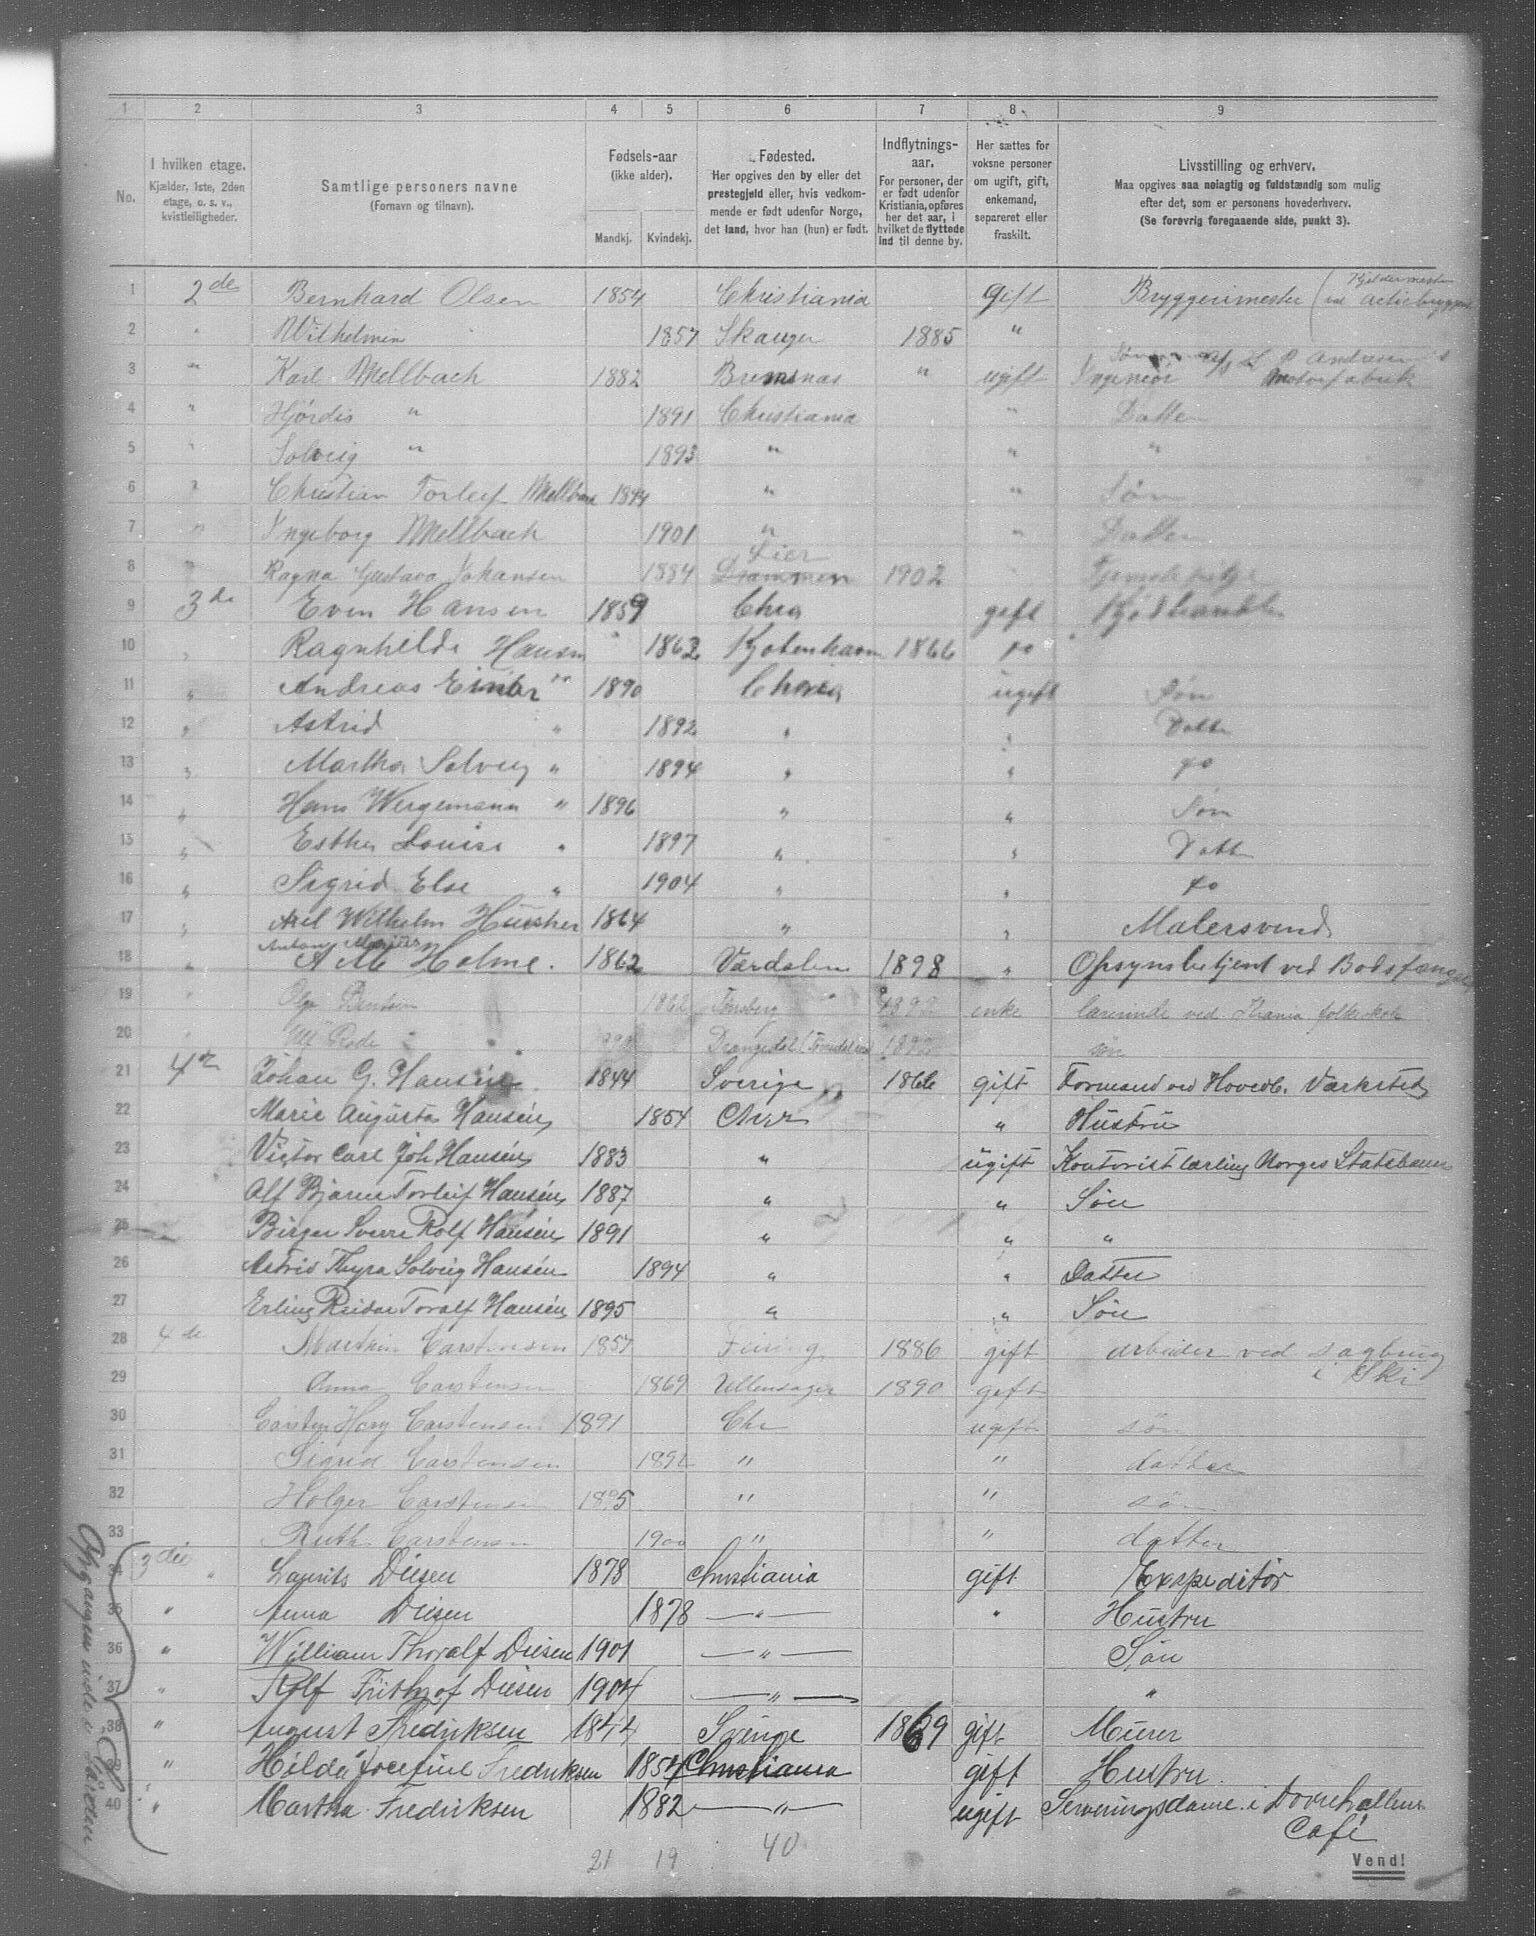 1 2 3 4 5 6 7 8 9
No.
I hvilken etage.
Kjælder, 1ste, 2den
etage, o. s. v.,
kvistleiligheder.
Samtlige personers navne
(Fornavn og tilnavn).
Fødsels-aar
(ikke alder).
Mandkj. Kvindekj.
Fødested.
Her opgives den by eller det
prestegjeld eller, hvis vedkom-
mende er født udenfor Norge,
det land, hvor han (hun) er født.
Indflytnings-
aar.
For personer, der
er født udenfor
Kristiania, opføres
her det aar, i
hvilket de flyttede
ind til denne by.
Her sættes for
voksne personer
om ugift, gift,
enkemand,
separeret eller
fraskilt.
Livsstilling og erhverv.
Maa opgives saa nøiagtig og fuldstændig som mulig
efter det, som er personens hovederhverv.
(Se forøvrig foregaaende side, punkt 3).
1 2de Bernhard Olsen 1854 Christiania gift Bryggerimester
2 " Wilhelmin 1857 Skauger 1885 "
3 " Karl Mellbach 1882 Bremsnæs " ugift Ingeniør Motorfabrik
4 " Hjørdis " 1891 Christiania " Datter
5 " Solveig " 1893 " " "
6 " Christian Torleif Mellbach 1894 " " Søn
7 " Ingeborg Mellbach 1901 " " Datter
8 " Ragna Gustava Johansen 1884 Lier Drammen 1902 " Tjenestepige
9 3de Even Hansen 1859 Chra gift Kjødhandler
10 " Ragnhilda Hansen 1862 Kjøbenhavn 1866 do
11 " Andreas Einar " 1890 Chria ugift Søn
12 " Astrid " 1892 " " Datt
13 " Martha Solveig " 1894 " " do
14 " Hans Wergemann " 1896 " " Søn
15 " Esther Louise " 1897 " " Datt
16 " Sigrid Else " 1904 " " do
17 " Axel Wilhelm 1864 " " Malersvend
18 " Anton A M Holme. 1862 Værdalen 1898 " Opsynsbetjent ved Bodsfængslet
19 " Olga Bentsen 1862 Tønsberg enke lærerinde ved Krania folkeskole
20 " Ulf Rode Drangedal søn
21 4de Johan G. Hansén 1844 Sverige 1866 gift Formand ved Hovedb. Værksted
22 Marie Augusta Hansén 1854 Chra " Hustru
23 Victor Carl Joh Hansén 1883 " ugift Kontoristlærling Norges Statsbaner
24 Alf Bjarne Torleif Hansén 1887 " " Søn
25 Birger Sverre Rolf Hansén 1891 " " "
26 Astrid Thyra Solveig Hansén 1894 " " Datter
27 Erling Reidar Toralf Hansén 1895 " " Søn
28 4de Martin Carstensen 1857 Feiring 1886 gift arbeider ved sagbrug
i Ski
29 Anna Carstensen 1869 Ullensager 1890 gift
30 Carsten Carstensen 1891 Chr ugift søn
31 Sigrid Carstensen 1892 " " datter
32 Holger Carstensen 1895 " " søn
33 Ruth Carstensen 1900 " " datter
34 3die " Laurits Diesen 1878 Christiania gift Expeditør
35 " Anna Diesen 1878 — " — " Hustru
36 " William Thoralf Diesen 1901 — " — Søn
37 " Rolf Frithjof Diesen 1904 — " — "
38 " August Fredriksen 1844 Sverige 1869 gift Murer
39 " Hilda Josefine Fredriksen 1854 Christiania gift Hustru
40 " Martha Fredriksen 1882 — " — ugift Serveringsdame i Dovrehallens
Café
21 19 40
Vend!
Opgangen inde i Gården